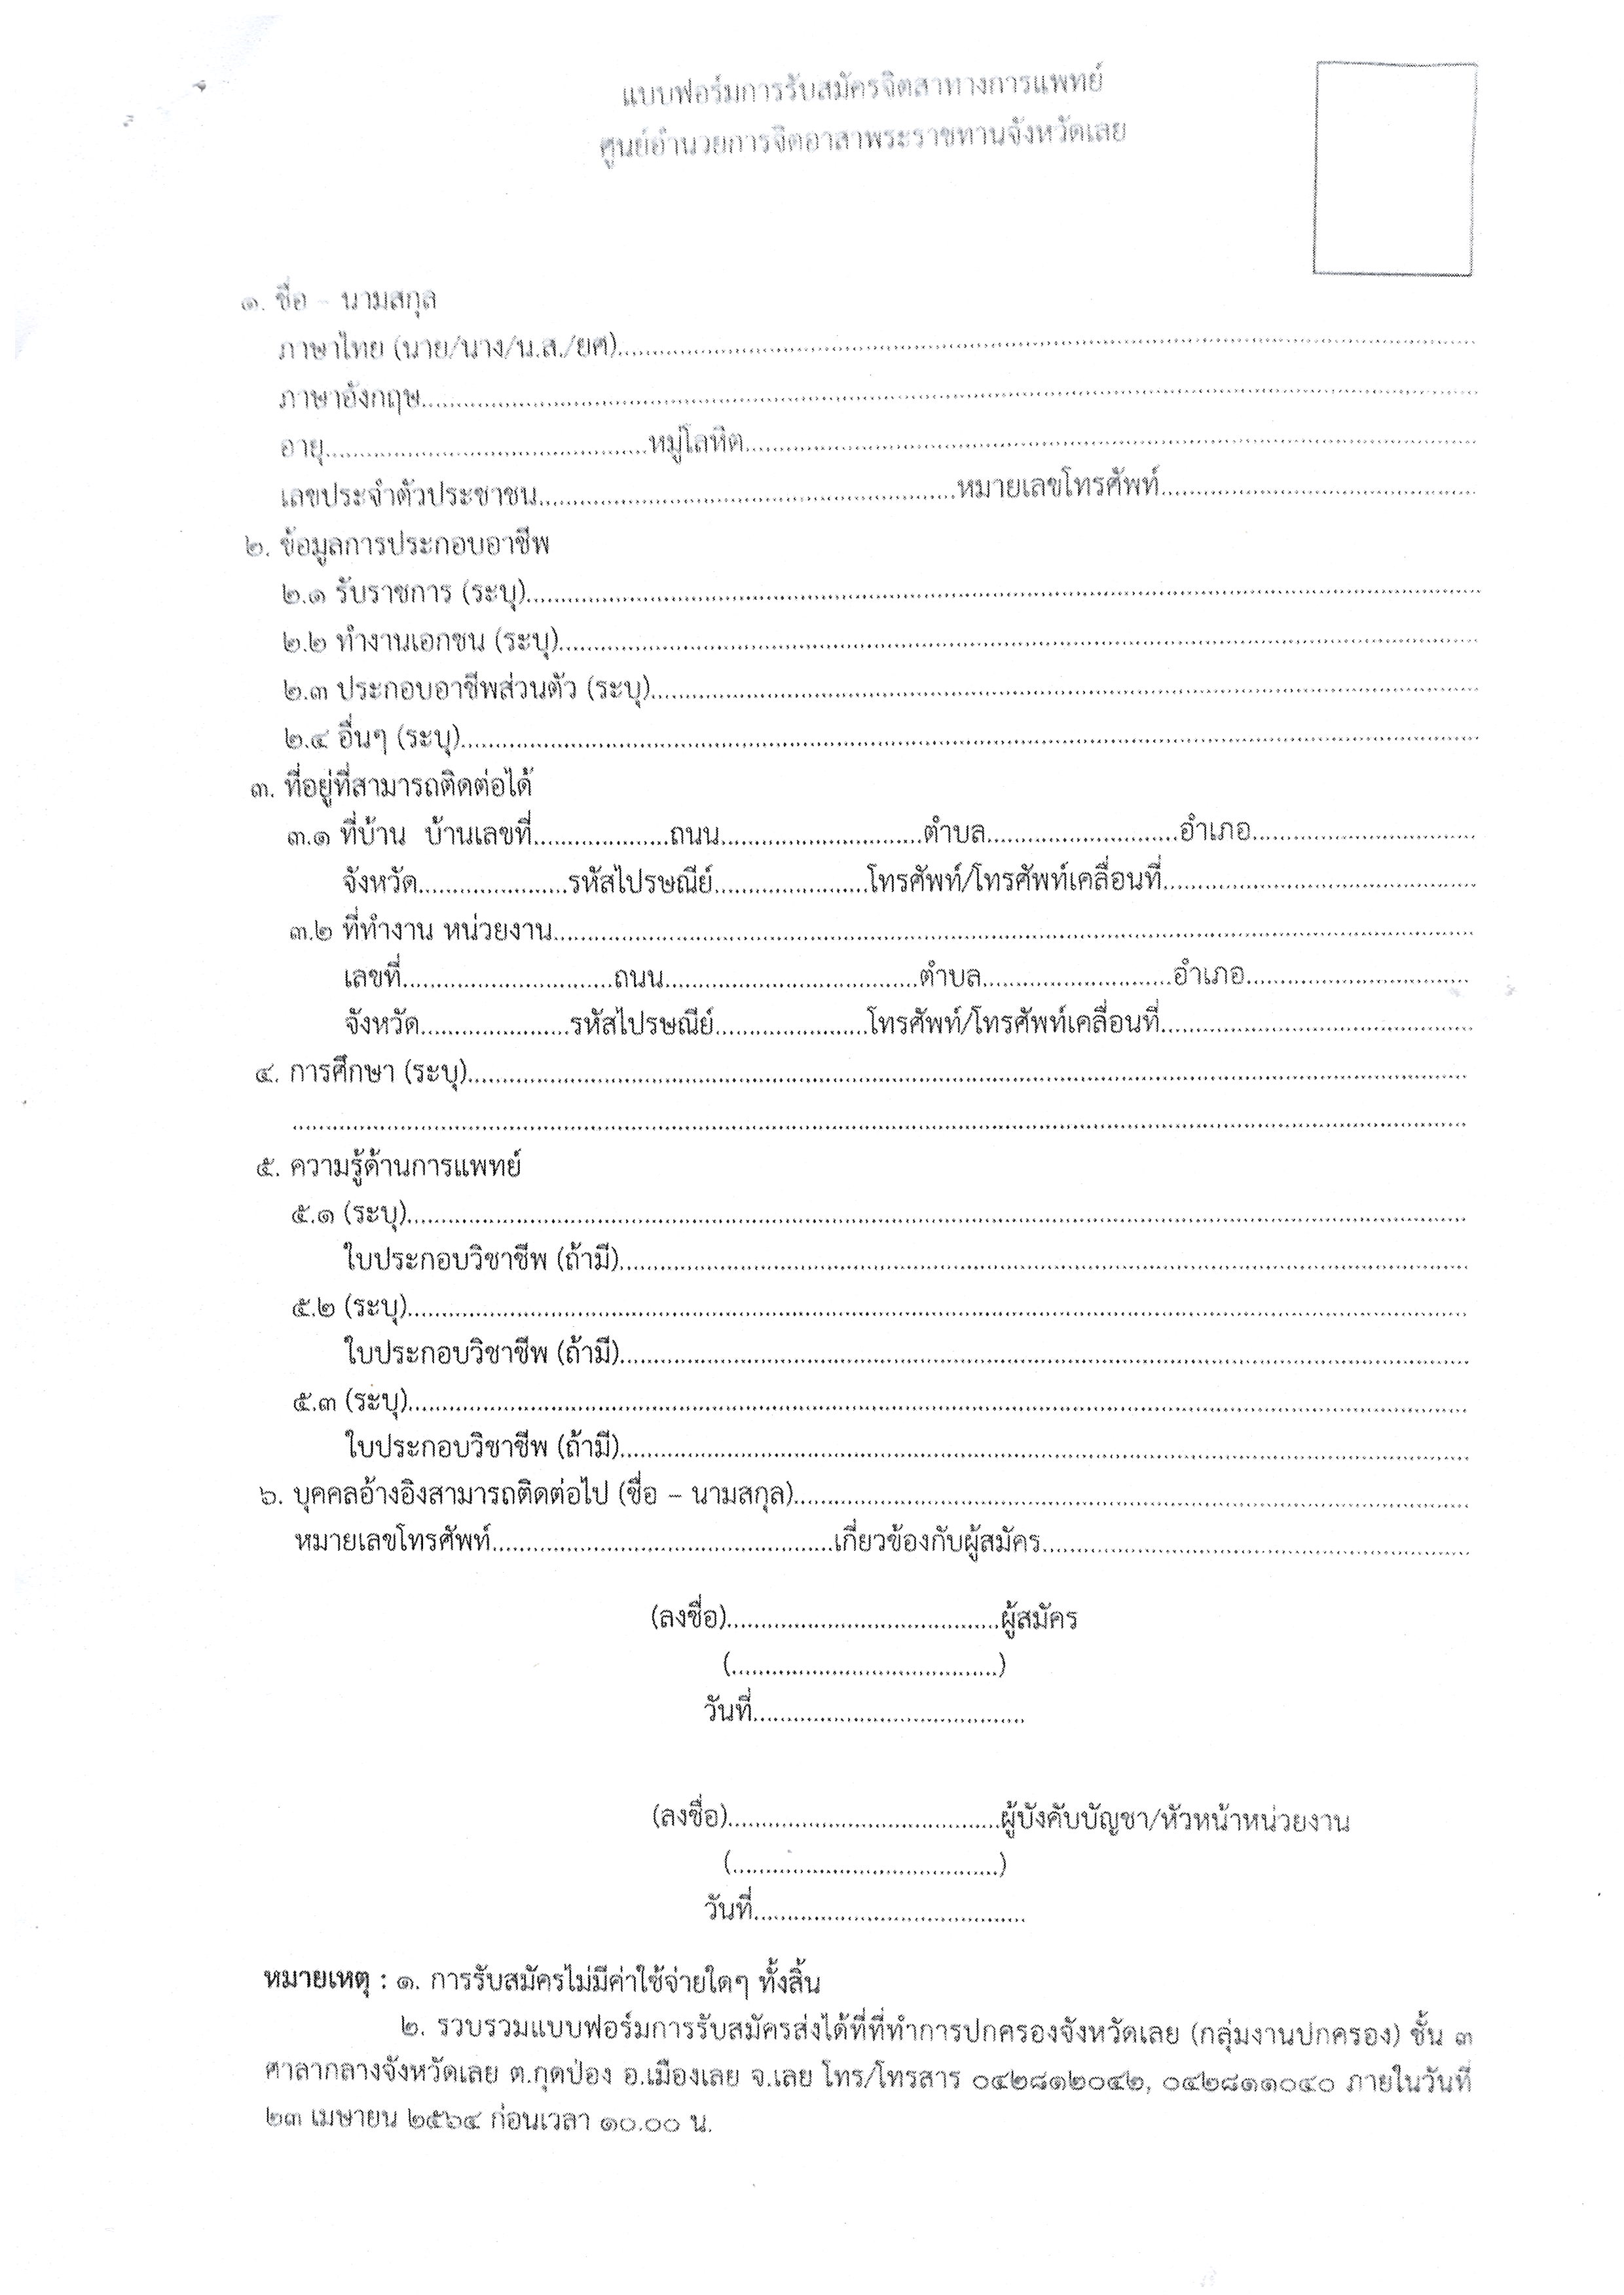 แบบฟอร์มการรับสมัครจิตสาทางการแพทย์
ศูนย์อำนวยการจิตอาสาพระราชทานจังหวัดเลย
๑. ชื่อ – นามสกุล
ภาษาไทย (นาย/นาง/น.ส./ยศ)....................
ภาษาอังกฤษ....................
อายุ....................หมู่โลหิต....................
เลขประจำตัวประชาชน....................หมายเลขโทรศัพท์....................
๒. ข้อมูลการประกอบอาชีพ
๒.๑ รับราชการ (ระบุ)....................
๒.๒ ทำงานเอกชน (ระบุ)....................
๒.๓ ประกอบอาชีพส่วนตัว (ระบุ)....................
๒.๔ อื่นๆ (ระบุ)....................
๓. ที่อยู่ที่สามารถติดต่อได้
๓.๑ ที่บ้าน บ้านเลขที่....................ถนน....................ตำบล....................อำเภอ....................
จังหวัด....................รหัสไปรษณีย์....................โทรศัพท์/โทรศัพท์เคลื่อนที่....................
๓.๒ ที่ทำงาน หน่วยงาน....................
เลขที่....................ถนน....................ตำบล....................อำเภอ....................
จังหวัด....................รหัสไปรษณีย์....................โทรศัพท์/โทรศัพท์เคลื่อนที่....................
๔. การศึกษา (ระบุ)....................
....................
๕. ความรู้ด้านการแพทย์
๕.๑ (ระบุ)....................
ใบประกอบวิชาชีพ (ถ้ามี)....................
๕.๒ (ระบุ)....................
ใบประกอบวิชาชีพ (ถ้ามี)....................
๕.๓ (ระบุ)....................
ใบประกอบวิชาชีพ (ถ้ามี)....................
๖. บุคคลอ้างอิงสามารถติดต่อไป (ชื่อ – นามสกุล)....................
หมายเลขโทรศัพท์....................เกี่ยวข้องกับผู้สมัคร....................
(ลงชื่อ)....................ผู้สมัคร
(....................)
วันที่....................
(ลงชื่อ)....................ผู้บังคับบัญชา/หัวหน้าหน่วยงาน
(....................)
วันที่....................
หมายเหตุ : ๑. การรับสมัครไม่มีค่าใช้จ่ายใดๆ ทั้งสิ้น
๒. รวบรวมแบบฟอร์มการรับสมัครส่งได้ที่ที่ทำการปกครองจังหวัดเลย (กลุ่มงานปกครอง) ชั้น ๓
ศาลากลางจังหวัดเลย ต.กุดป่อง อ.เมืองเลย จ.เลย โทร/โทรสาร ๐๔๒๘๑๒๐๔๒, ๐๔๒๘๑๑๐๔๐ ภายในวันที่
๒๓ เมษายน ๒๕๖๔ ก่อนเวลา ๑๐.๐๐ น.